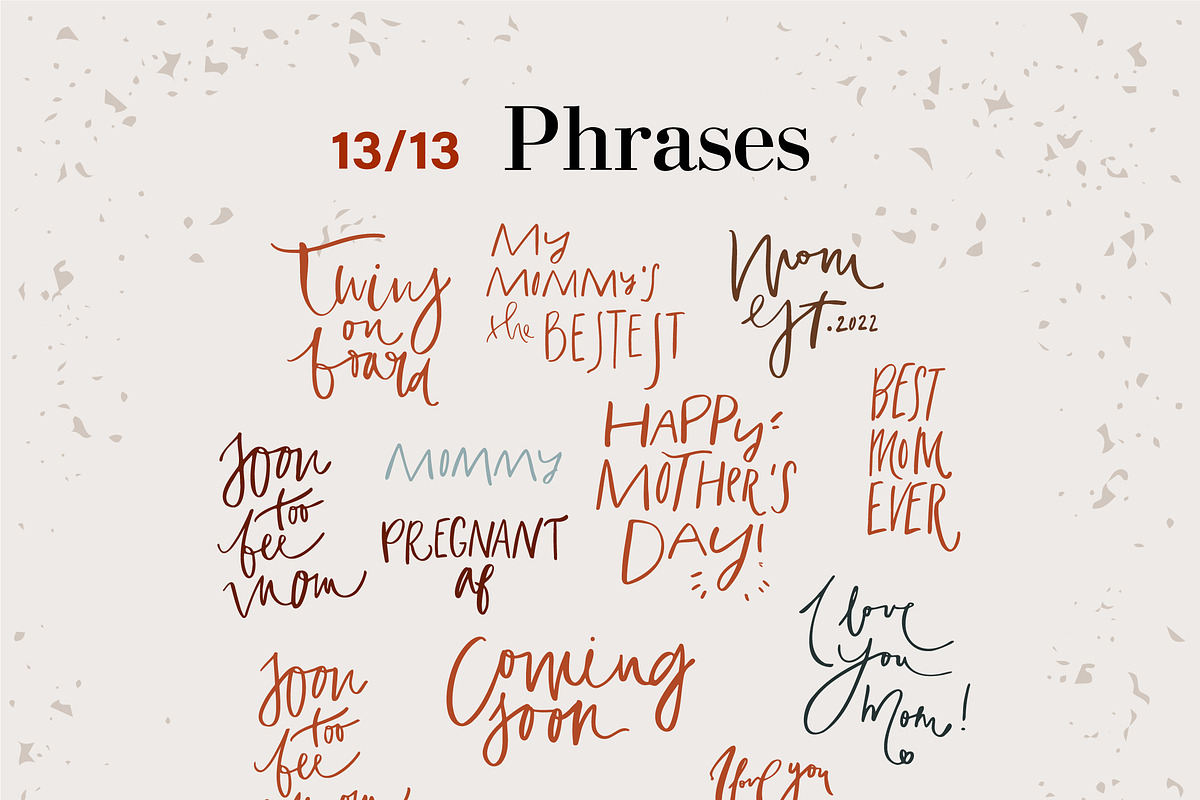 13/13 Phrases
Twins
on
board
My
MOMMY'S
the BESTEST
Mom
est.2022
BEST
MOM
EVER
HAPPY
MOTHER'S
DAY!
Soon
too
bee
mom
MOMMY
PREGNANT
af
I love
you
Mom!
Coming
soon
Soon
too
bee
mom
I love you